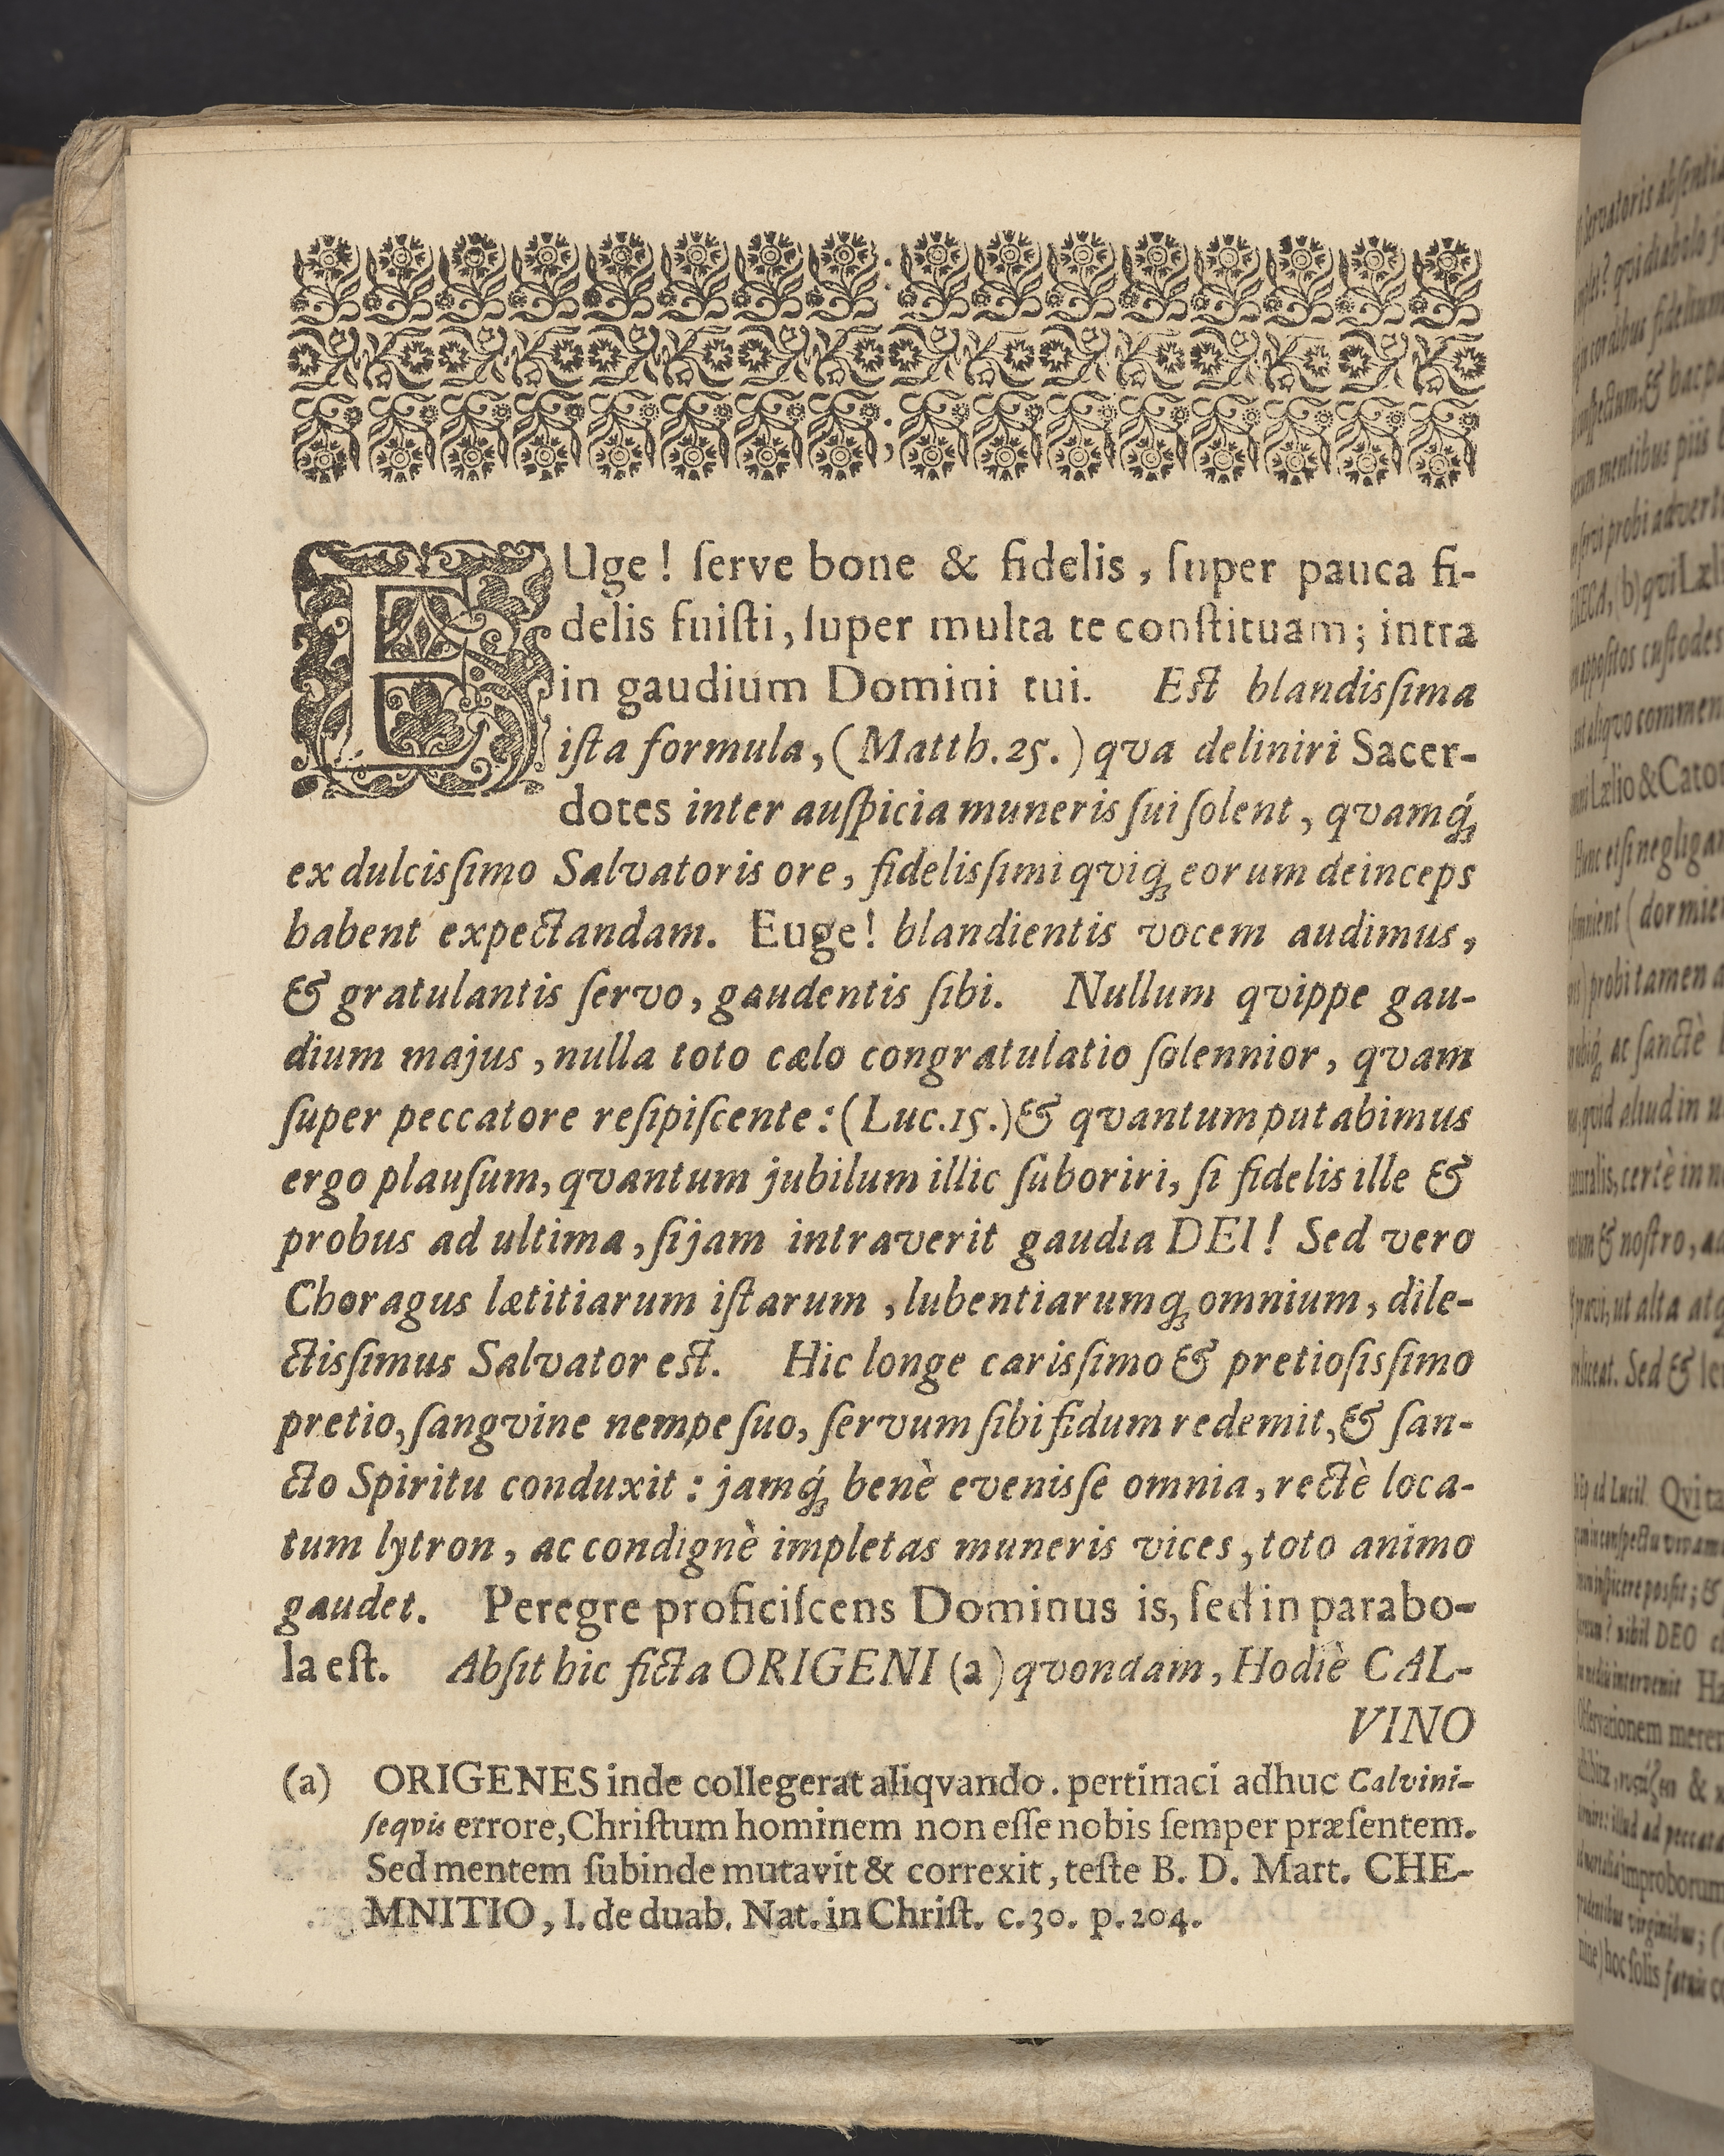 EUge! ſerve bone & fidelis, ſuper pauca fi-
delis fuiſti, ſuper multa te conſtituam; intra
in gaudium Domini tui. Eſt blandisſima
iſta formula, (Matth. 25.) qva deliniri Sacer-
dotes inter auſpicia muneris ſui ſolent, qvamq́;
ex dulcisſimo Salvatoris ore, fidelisſimi qviq; eorum deinceps
habent expectandam. Euge! blandientis vocem audimus,
& gratulantis ſervo, gaudentis ſibi. Nullum qvippe gau-
dium majus, nulla toto cælo congratulatio ſolennior, qvam
ſuper peccatore reſipiſcente: (Luc. 15.) & qvantum putabimus
ergo plauſum, qvantum jubilum illic ſuboriri, ſi fidelis ille &
probus ad ultima, ſi jam intraverit gaudia DEI! Sed vero
Choragus lætitiarum iſtarum, lubentiarumq; omnium, dile-
ctisſimus Salvator eſt. Hic longe carisſimo & pretioſisſimo
pretio, ſangvine nempe ſuo, ſervum ſibi fidum redemit, & ſan-
cto Spiritu conduxit: jamq́; benè evenisſe omnia, rectè loca-
tum lytron, ac condignè impletas muneris vices, toto animo
gaudet. Peregre proficiſcens Dominus is, ſed in parabo-
la eſt. Abſit hic ficta ORIGENI (a) qvondam, Hodiè CAL-
VINO
(a) ORIGENES inde collegerat aliqvando. pertinaci adhuc Calvini-
ſeqvis errore, Chriſtum hominem non eſſe nobis ſemper præſentem.
Sed mentem ſubinde mutavit & correxit, teſte B. D. Mart. CHE-
MNITIO, l. de duab. Nat. in Chriſt. c. 30. p. 204.